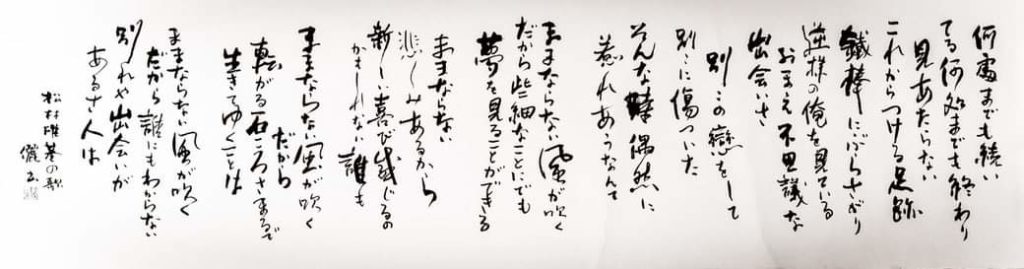 何處までも続い
てる何処までも終わり
見あたらない
これからつける足跡
鐵棒にぶらさがり
逆様の俺を見ている
おまえ不思議な
出会いさ
別々の戀をして
別々に傷ついた
そんな 偶然に
惹れあうなんて
ままならない風が吹く
だから些細なことにでも
夢を見ることができる
ままならない
悲しみあるから
新しい喜び感じるの
かもしれない誰も
ままならない風が吹く
だから
転がる石ころさまるで
生きてゆくことは
ままならない風が吹く
だから誰にもわからない
別れや出会いが
あるさ人は
松村雄基の歌